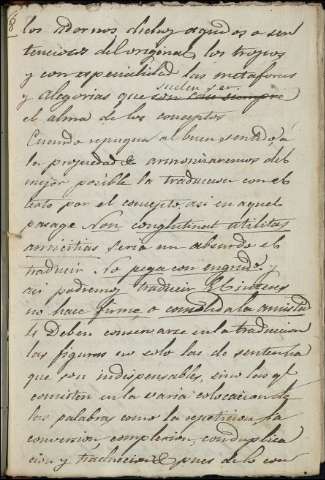 los adornos dichos agudos o sen
tencioses del original, los tropos
y con especialidad las metaforas
suelen ser
y alegorias que con casi siempre
el alma de los conceptos
Cuando repugna al buen sentido, a
la propiedad armonisaremos del
mejor posible la traduccion con el
testo por el concepto, asi en aquel
pasage Non conglutinat utilitas
amicitias seria un absurdo el
traducir No pega con engrudo
asi podremos traducir El interes
no hace firme o consolida la amistad
4 Deben conservarse en la traduccion
las figuras no solo las de sentencia
que son indispensables, sino las qe
consisten en la varia colocacion de
las palabras como la repeticion, la
conversion, complexion, conduplica
cion y traduccion pues de lo con